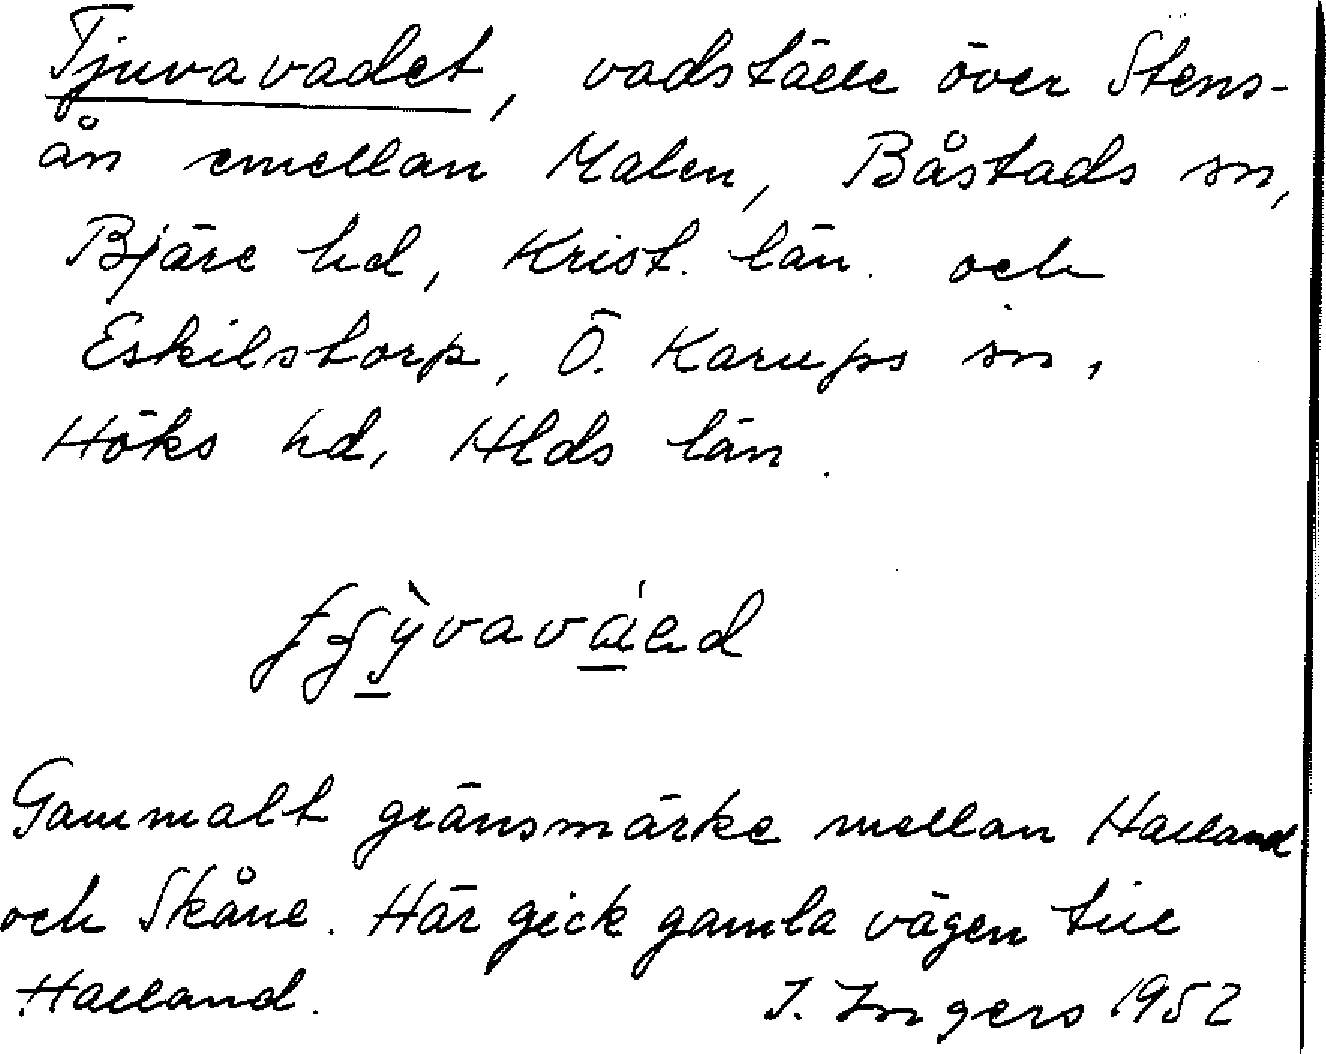 Tjuvavadet, vadställe över Stens-
ån emellan Malen, Båstads sn,
Bjäre hd, Krist. län. och
Eskilstorp, Ö. Karups sn,
Höks hd, Hlds län.
Gammalt gränsmärke mellan Halland
och Skåne. Här gick gamla vägen till
Halland. I. Ingers 1952